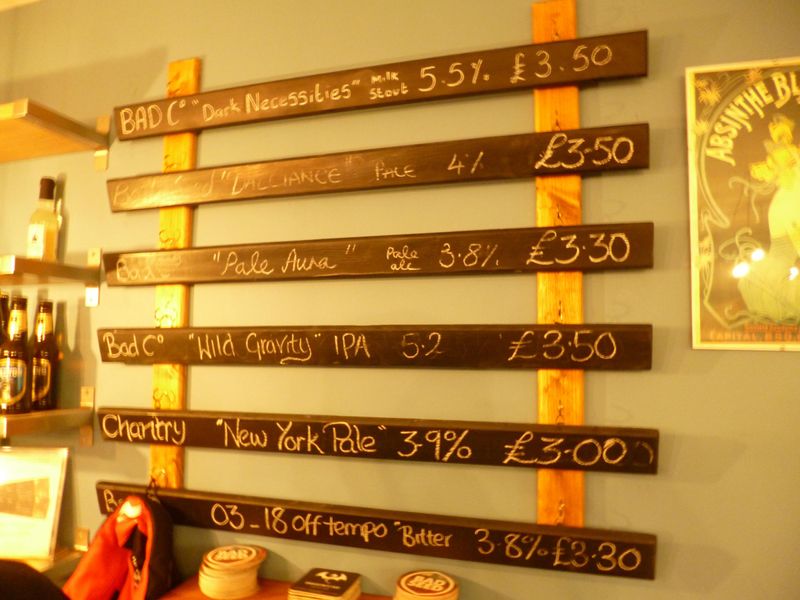 BAD Cº "Dark Necessities" Milk Stout 5.5% £3.50
"DALLIANCE" PALE 4% £3.50
Bad Cº "Pale Aura" Pale ale 3.8% £3.30
Bad Cº "Wild Gravity" IPA 5.2 £3.50
Chantry "New York Pale" 3.9% £3.00
03_18 Offtempo "Bitter 3.8% £3.30
ABSINTHE